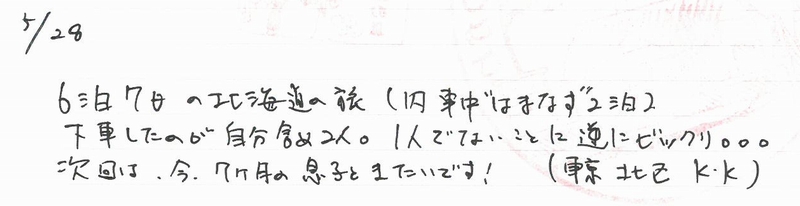 5/28
6泊7日の北海道の旅(内車中"はまなす"2泊)
下車したのが自分含め2人。1人でないことに逆にビックリ。。。
次回は、今、7ヶ月の息子ときたいです! (東京 北区 K・K)